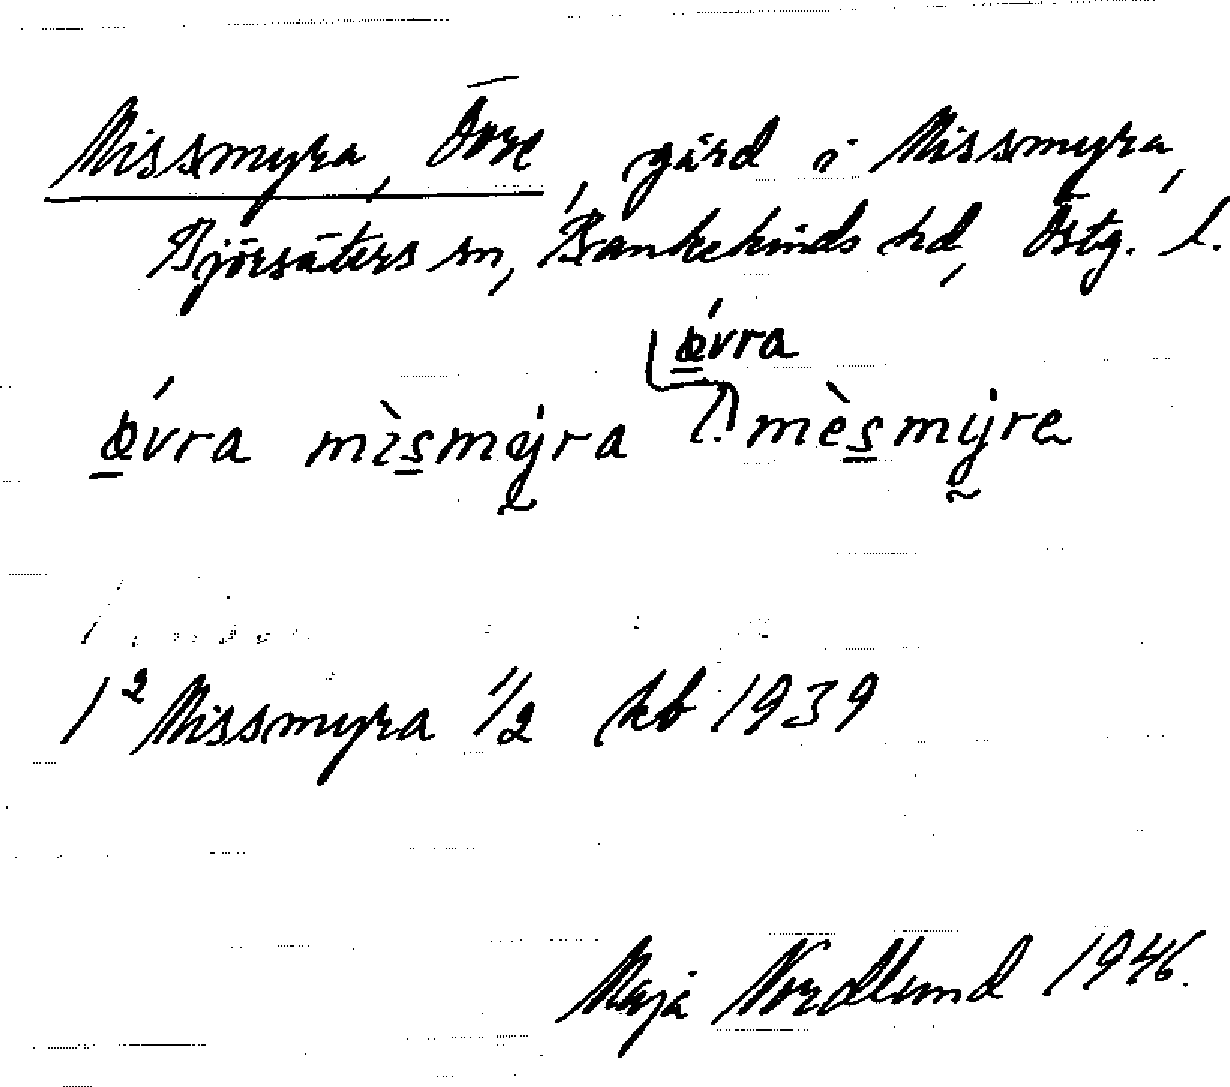 Missmyra, Övre, gård i Missmyra,
Björsäters sn, Bankekinds hd, Östg. l.
ǿvra
ǿvra mìsmýra l. mèsmýre
1² Missmyra 1/2 kb 1939
Maja Nordlund 1946.